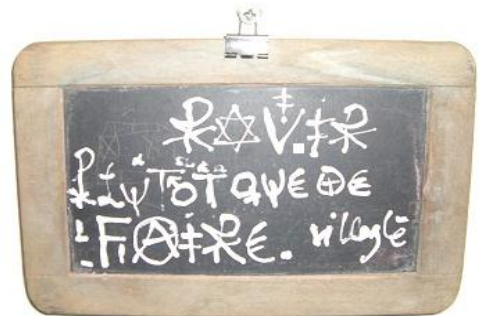 R✡V.‡R
PLUTÔT QUE DE
FAIRE. villeglé